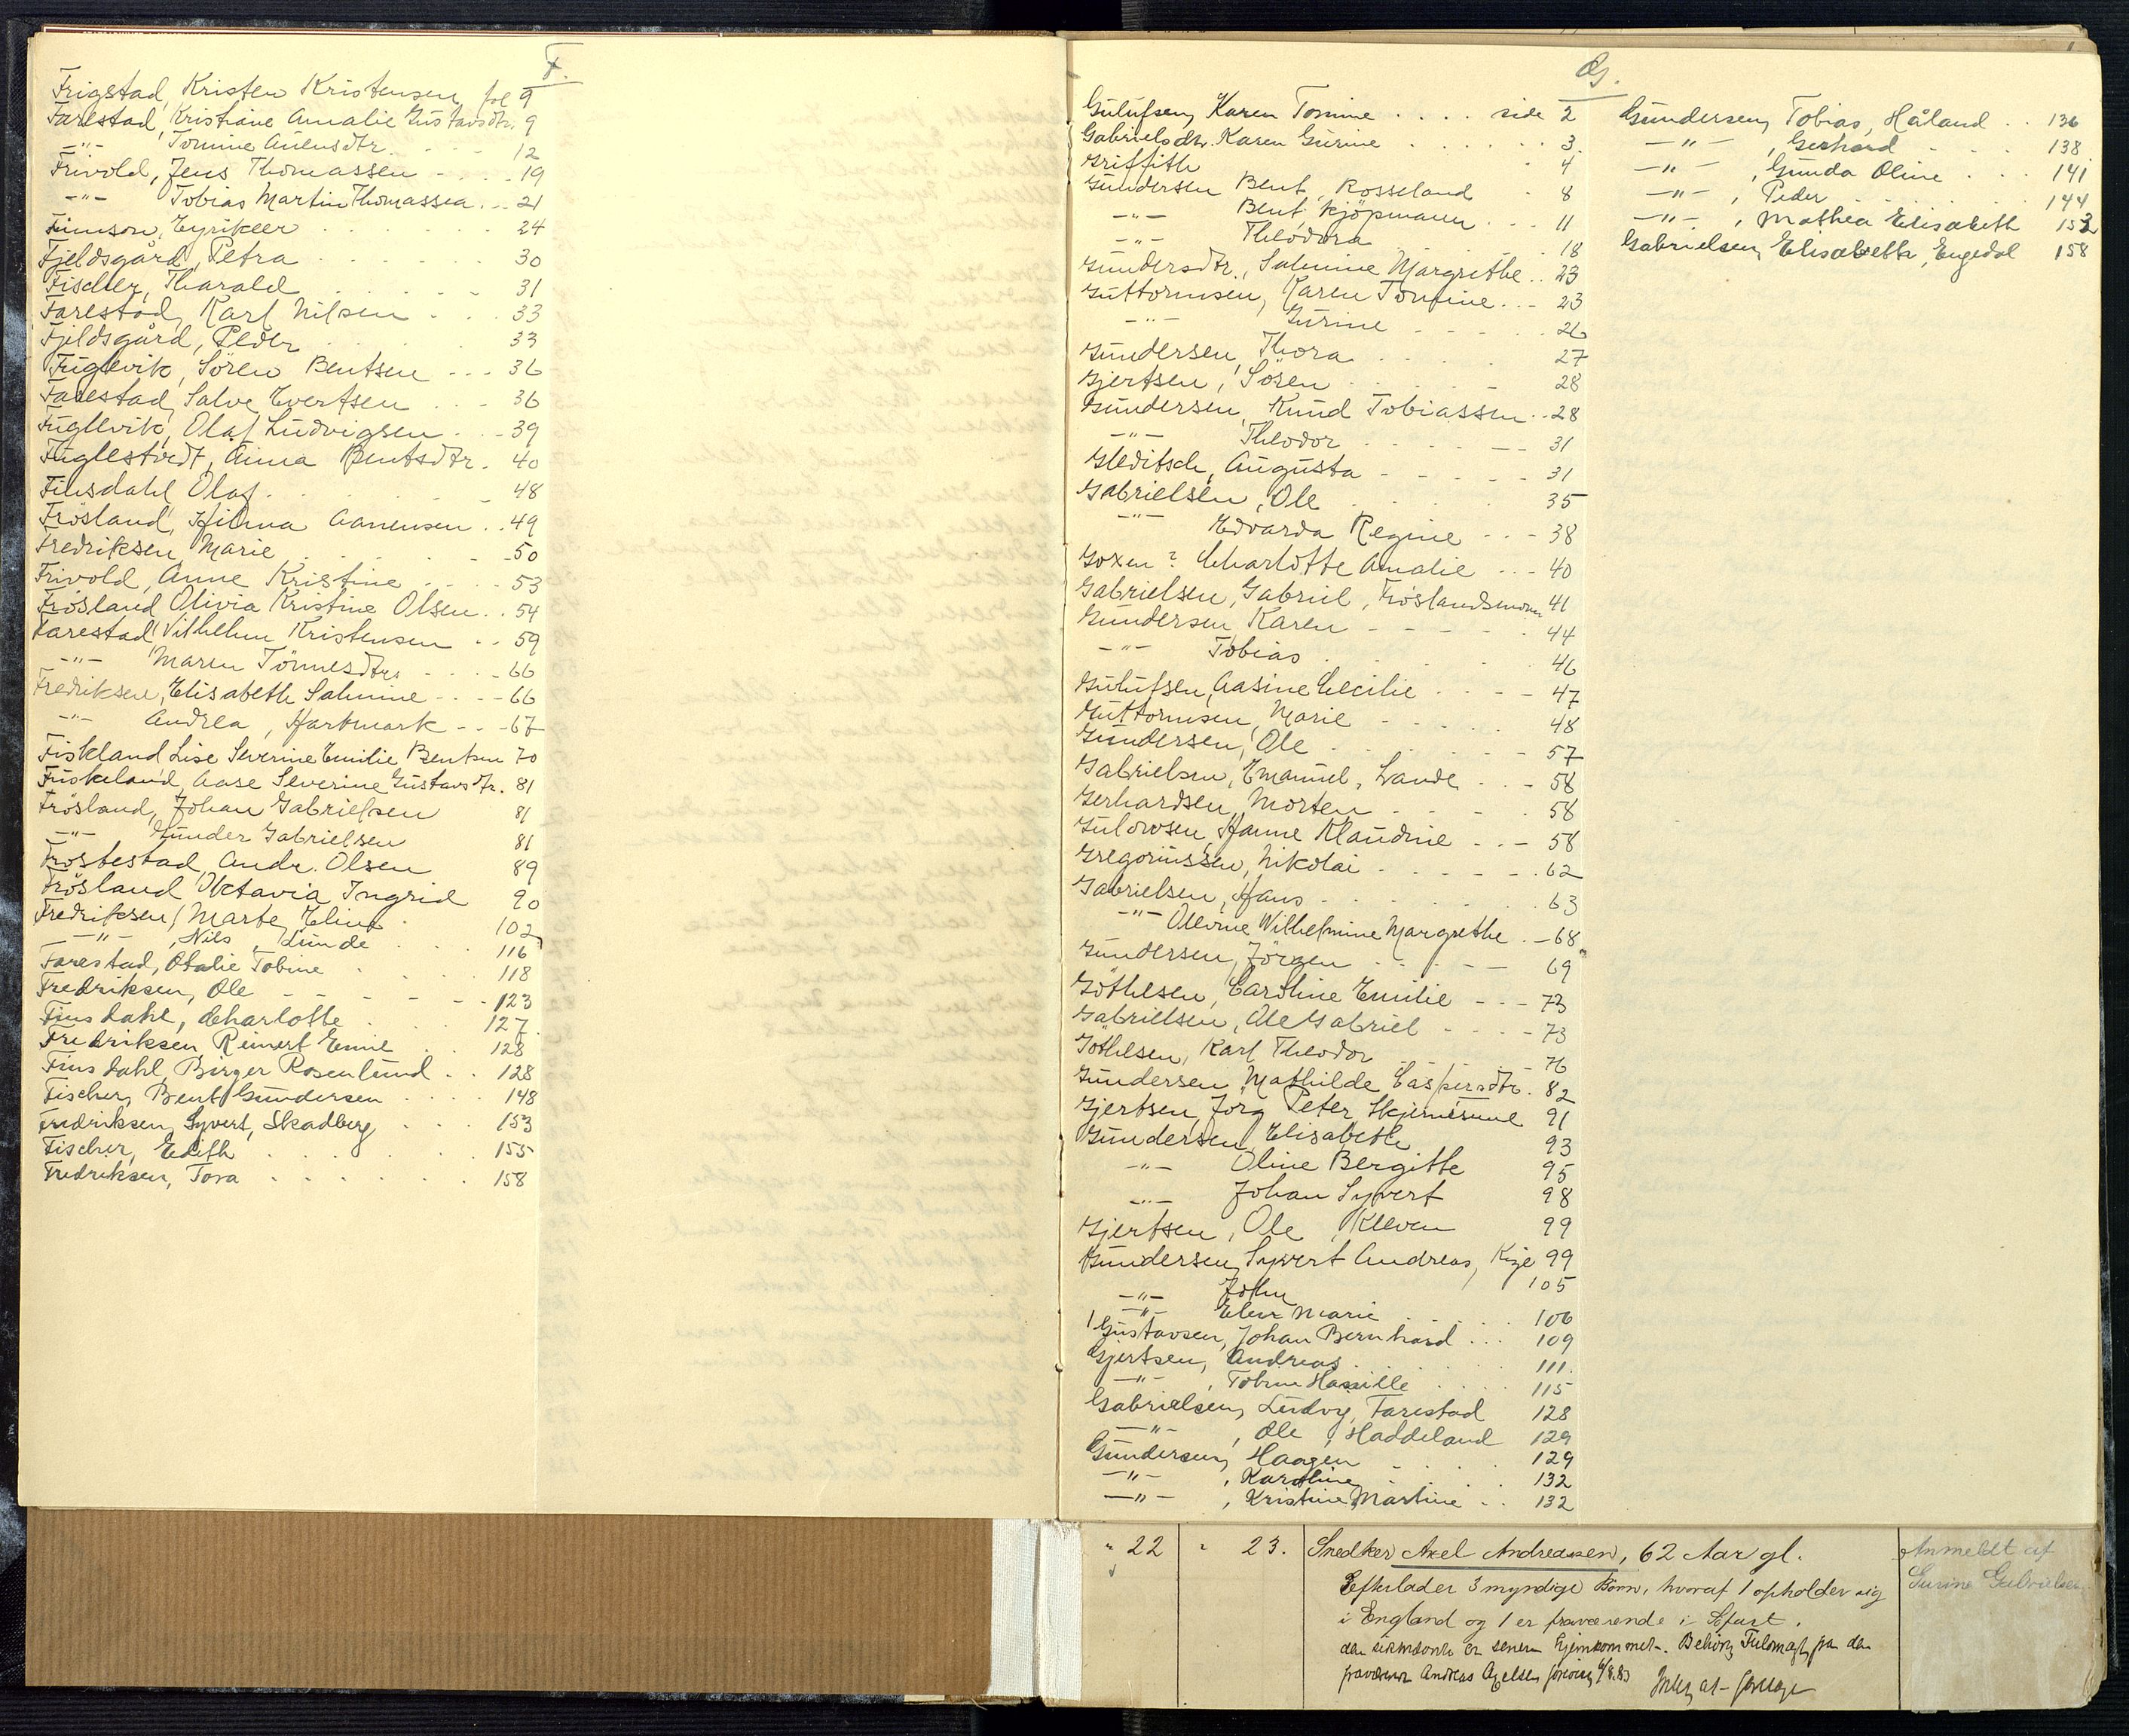 F.
Frigstad, Kristen Kristensen fol 9
Farestad, Kristiane Amalie Gustavsdtr. 9
-"- Tomine Anensdtr. 12
Frivold, Jens Thomassen 19
-"- Tobias Martin Thomassen 21
24
Fjeldsgård, Petra 30
Fischer, Tharald 31
Farestad, Karl Nilsen 33
Fjeldsgård, Peder 33
Fuglevik, Sören Bentsen 36
Farestad, Salve Evertsen 36
Fuglevik, Olaf Ludvigsen 39
Fuglestvedt, Anna Bentsdtr. 40
Finsdahl, Olaf 48
Frösland, Hilma Aanensen 49
Fredriksen, Marie 50
Frivold, Anne Kristine 53
Frösland Olivia Kristine Olsen 54
Farestad, Vilhelm Kristensen 59
-"- Maren Tönnesdtr. 66
Fredriksen, Elisabeth Salmine 66
-"- Andrea, Hartmark 67
Fiskland Lise Severine Emilie Bentsen 70
Fuskeland, Aase Severine Gustavsdtr. 81
Frösland, Johan Gabrielsen 81
-"- Gunder Gabrielsen 81
Frostestad, Andr. Olsen 89
Frösland Oktavia Ingrid 90
Fredriksen, Marte Eline 102
-"- , Nils, Lunde 116
Farestad, Otalie Tobine 118
Fredriksen, Ole 123
Finsdahl, Charlotte 127.
Fredriksen, Reinert Emil 128
Finsdahl, Birger Rosenlund 128
Fischer, Bent Gundersen 148
Fredriksen, Syvert, Skadberg 153
Fischer, Edith 155
Fredriksen, Tora 158
G.
Gulufsen, Karen Tomine side 2
Gabrielsdtr. Karen Gurine 3.
Griffith 4
Gundersen Bent, Rosseland 8
-"- Bent, Kjöpmann 11
-"- Theodora 18
Gundersdtr., Salmine Margrethe 23
Guttormsen, Karen Tomine 23
-"- Gurine 26
Gundersen, Thora 27
Gjertsen, Sören 28
Gundersen, Knud Tobiassen 28
-"- Theodor 31
Gleditsch, Augusta 31
Gabrielsen, Ole 35
-"- Edvarda Regine 38
Goxen? Charlotte Amalie 40
Gabrielsen, Gabriel, Fröslandsmoen 41
Gundersen, Karen 44
-"- Tobias 46
Gulufsen, Aasine Cecilie 47
Guttormsen, Marie 48
Gundersen, Ole 57
Gabrielsen, Emanuel, Lande 58
Gerhardsen, Morten 58
Gulowsen, Hanne Klaudine 58
Gregoriussen, Nikolai 62
Gabrielsen, Hans 63
-"- Olevine Wilhelmine Margrethe 68
Gundersen, Jörgen 69
Göthesen, Caroline Emilie 73
Gabrielsen, Ole Gabriel 73
Göthesen, Karl Theodor 76
Gundersen, Mathilde Caspersdtr. 82
Gjertsen, Jörg Peter 91
Gundersen, Elisabeth 93
-"- Oline Bergitte 95
-"- Johan Syvert 98
Gjertsen, Ole, Kleven 99
Gundersen, Syvert Andreas, Kige 99
-"- John 105
-"- Elen Marie 106
Gustavsen, Johan Bernhard 109
Gjertsen, Andreas 111.
-"- , 115
Gabrielsen, Ludvig, Farestad 128
-"- , Ole, Haddeland 129
Gundersen, Haagen 129
-"- , Karoline 132
-"- , Kristine Martine 132
Gundersen, Tobias, Håland 136
-"- , Gerhard 138
-"- , Gunda Oline 141
-"- , Peder 144
-"- , Mathea Elisabeth 152
Gabrielsen, Elisabeth, Engedal 158
" 22 " 23. Snedker Axel Andreassen, 62 Aar gl.
Efterlader 3 myndige Børn, hvoraf 1 opholder sig
i England og 1 er fraværende i Sfart.
den sidstnævnte er senere hjemkommet. Behörig Fuldmagt fra den
fraværende Andreas Axelsen 6/8.83
Anmeldt af
Surine Gabrielsen